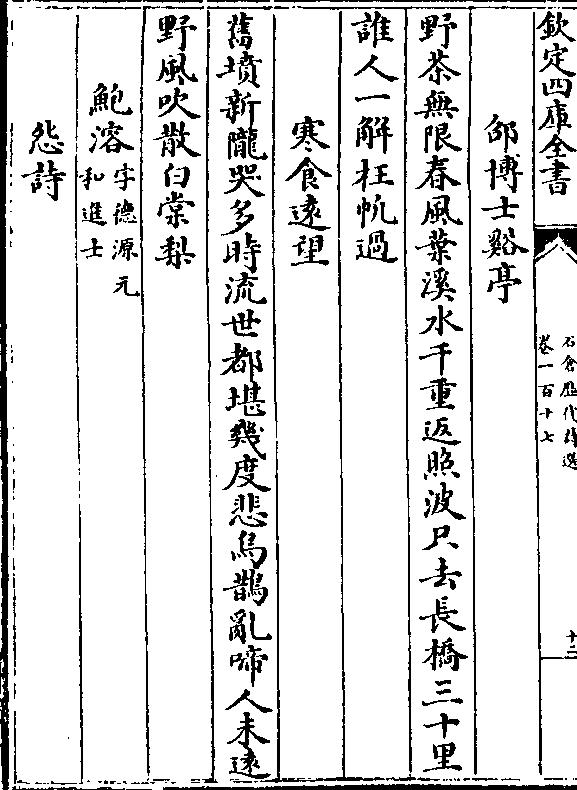 欽定四庫全書
石倉歷代詩選
卷一百十七
十二
邵博士谿亭
野茶無限春風葉溪水千重返照波只去長橋三十里
誰人一解枉帆過
寒食遠望
舊墳新隴哭多時流世都堪幾度悲烏鵲亂啼人未遠
野風吹散白棠梨
鮑溶字德源元
和進士
怨詩